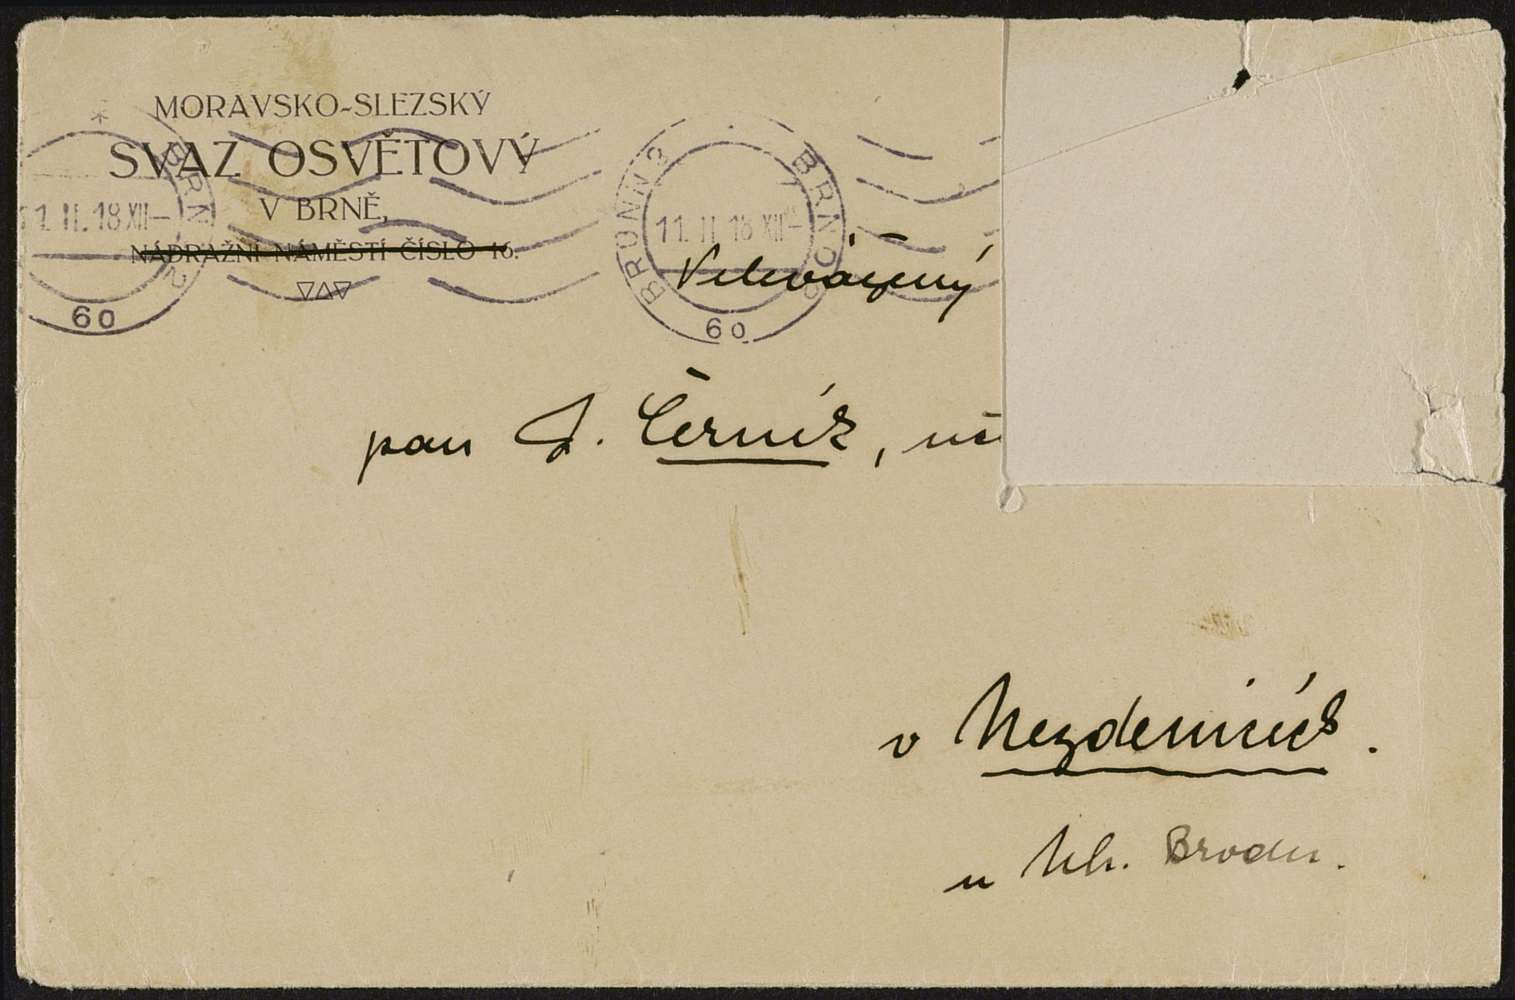 MORAVSKO-SLEZSKÝ
SVAZ OSVĚTOVÝ
V BRNĚ,
NÁDRAŽNÍ NÁMĚSTÍ ČÍSLO 16.
BRNO 2
11. II. 18 XII-
60
BRÜNN 2 BRNO 2
11. II. 18 XII-
60
Velevážený
pan J. Černík, uč
v Nezdenicích.
u Uh. Brodu.